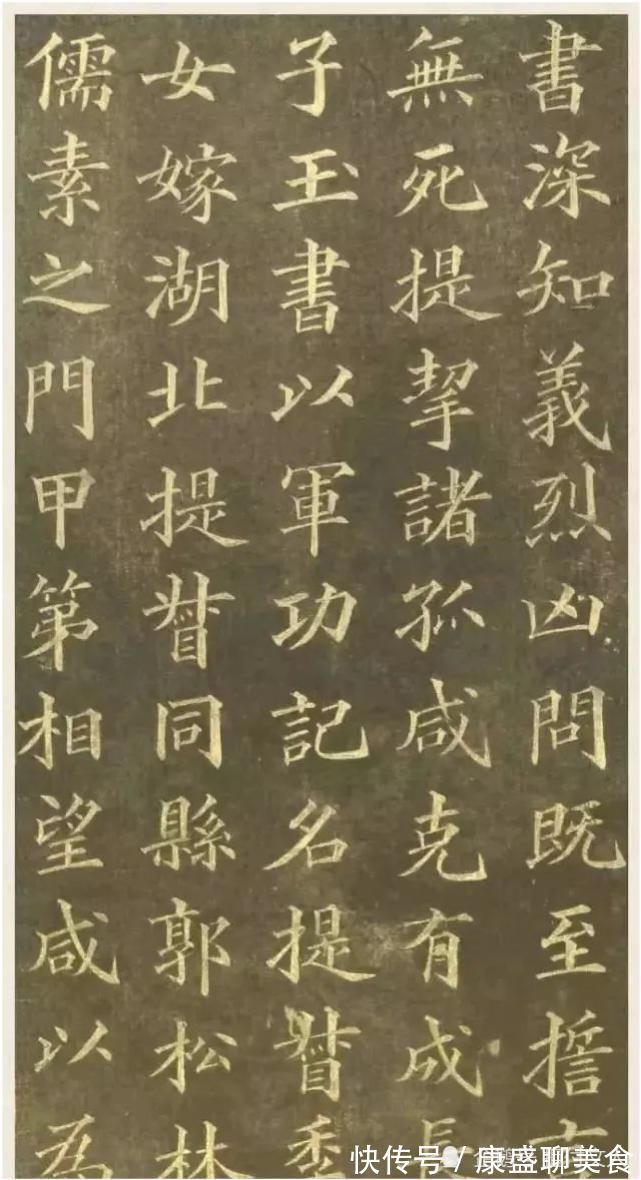 書深知義烈凶問既至擔
無死提挈諸孤咸克有成長
子玉書以軍功記名提督委
女嫁湖北提督同縣郭松林
儒素之門甲第相望咸以為
快传号/康盛聊美食